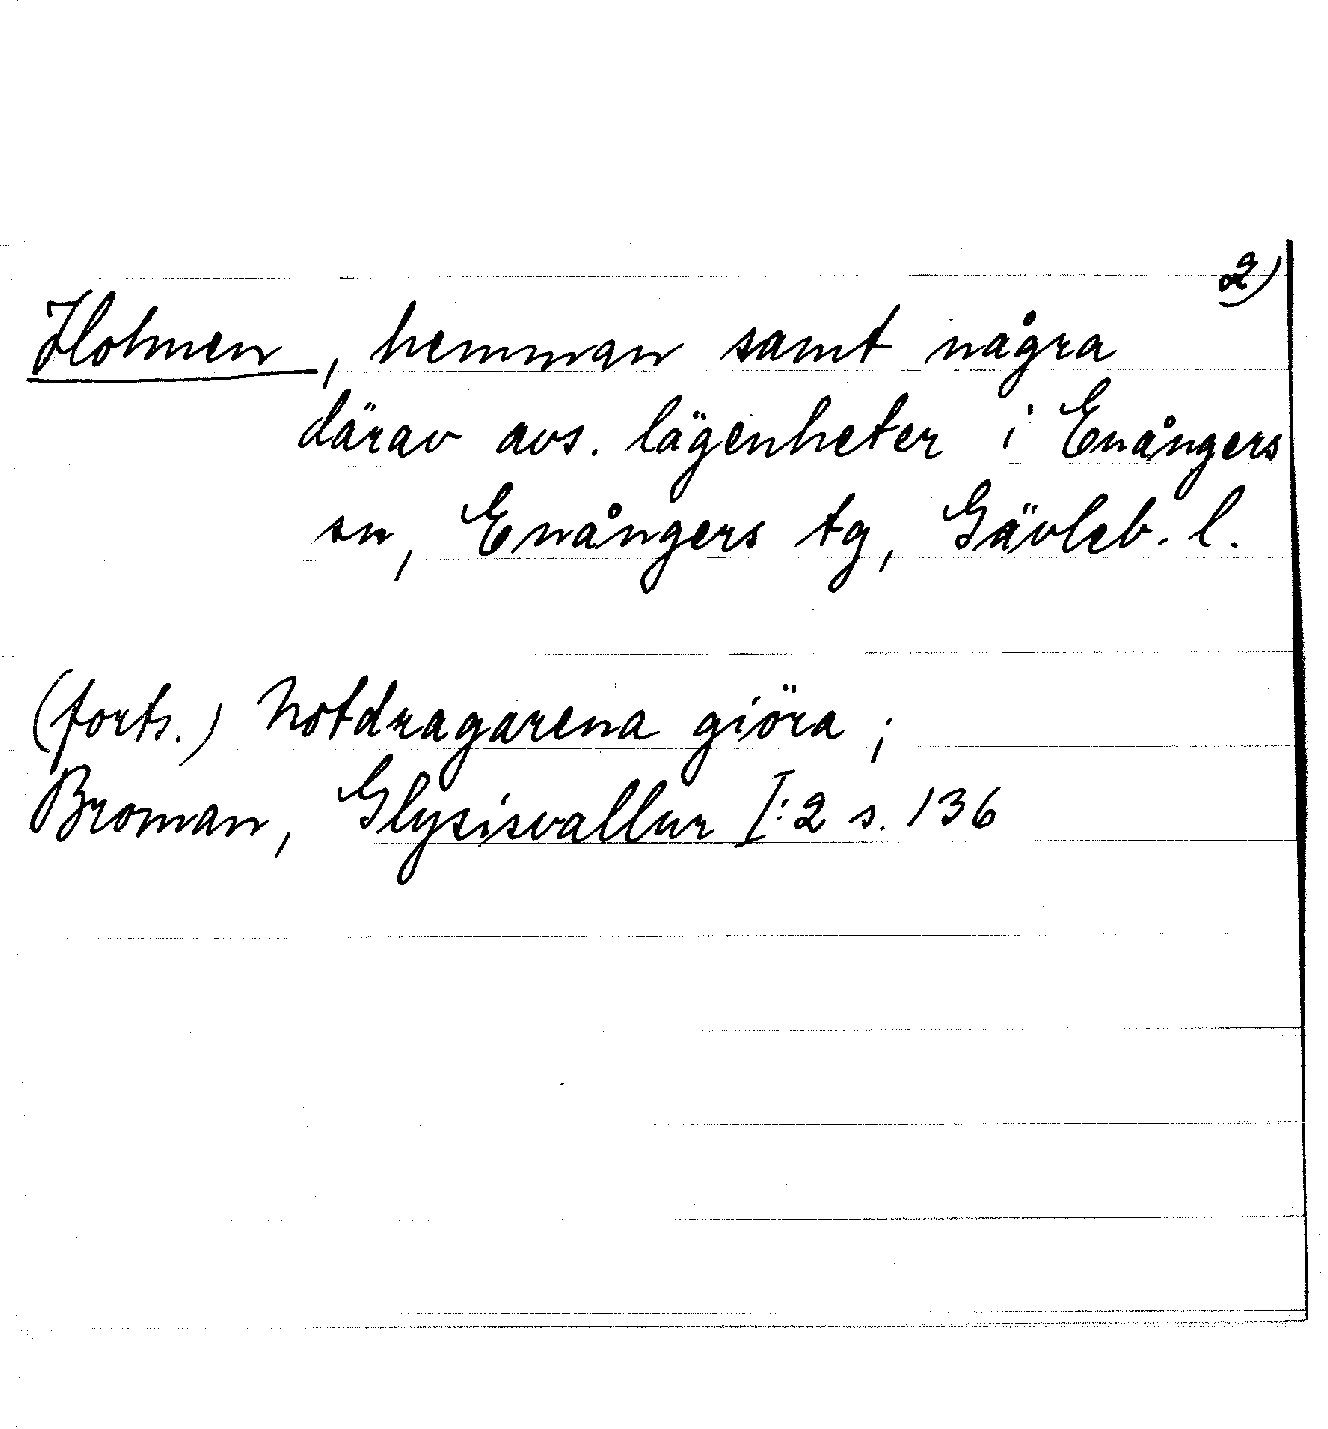 2)
Holmen, hemman samt några
därav avs. lägenheter i Enångers
sn, Enångers tg, Gävleb. l.
(forts.) Notdragarena giöra;
Broman, Glysisvallur I:2 s. 136